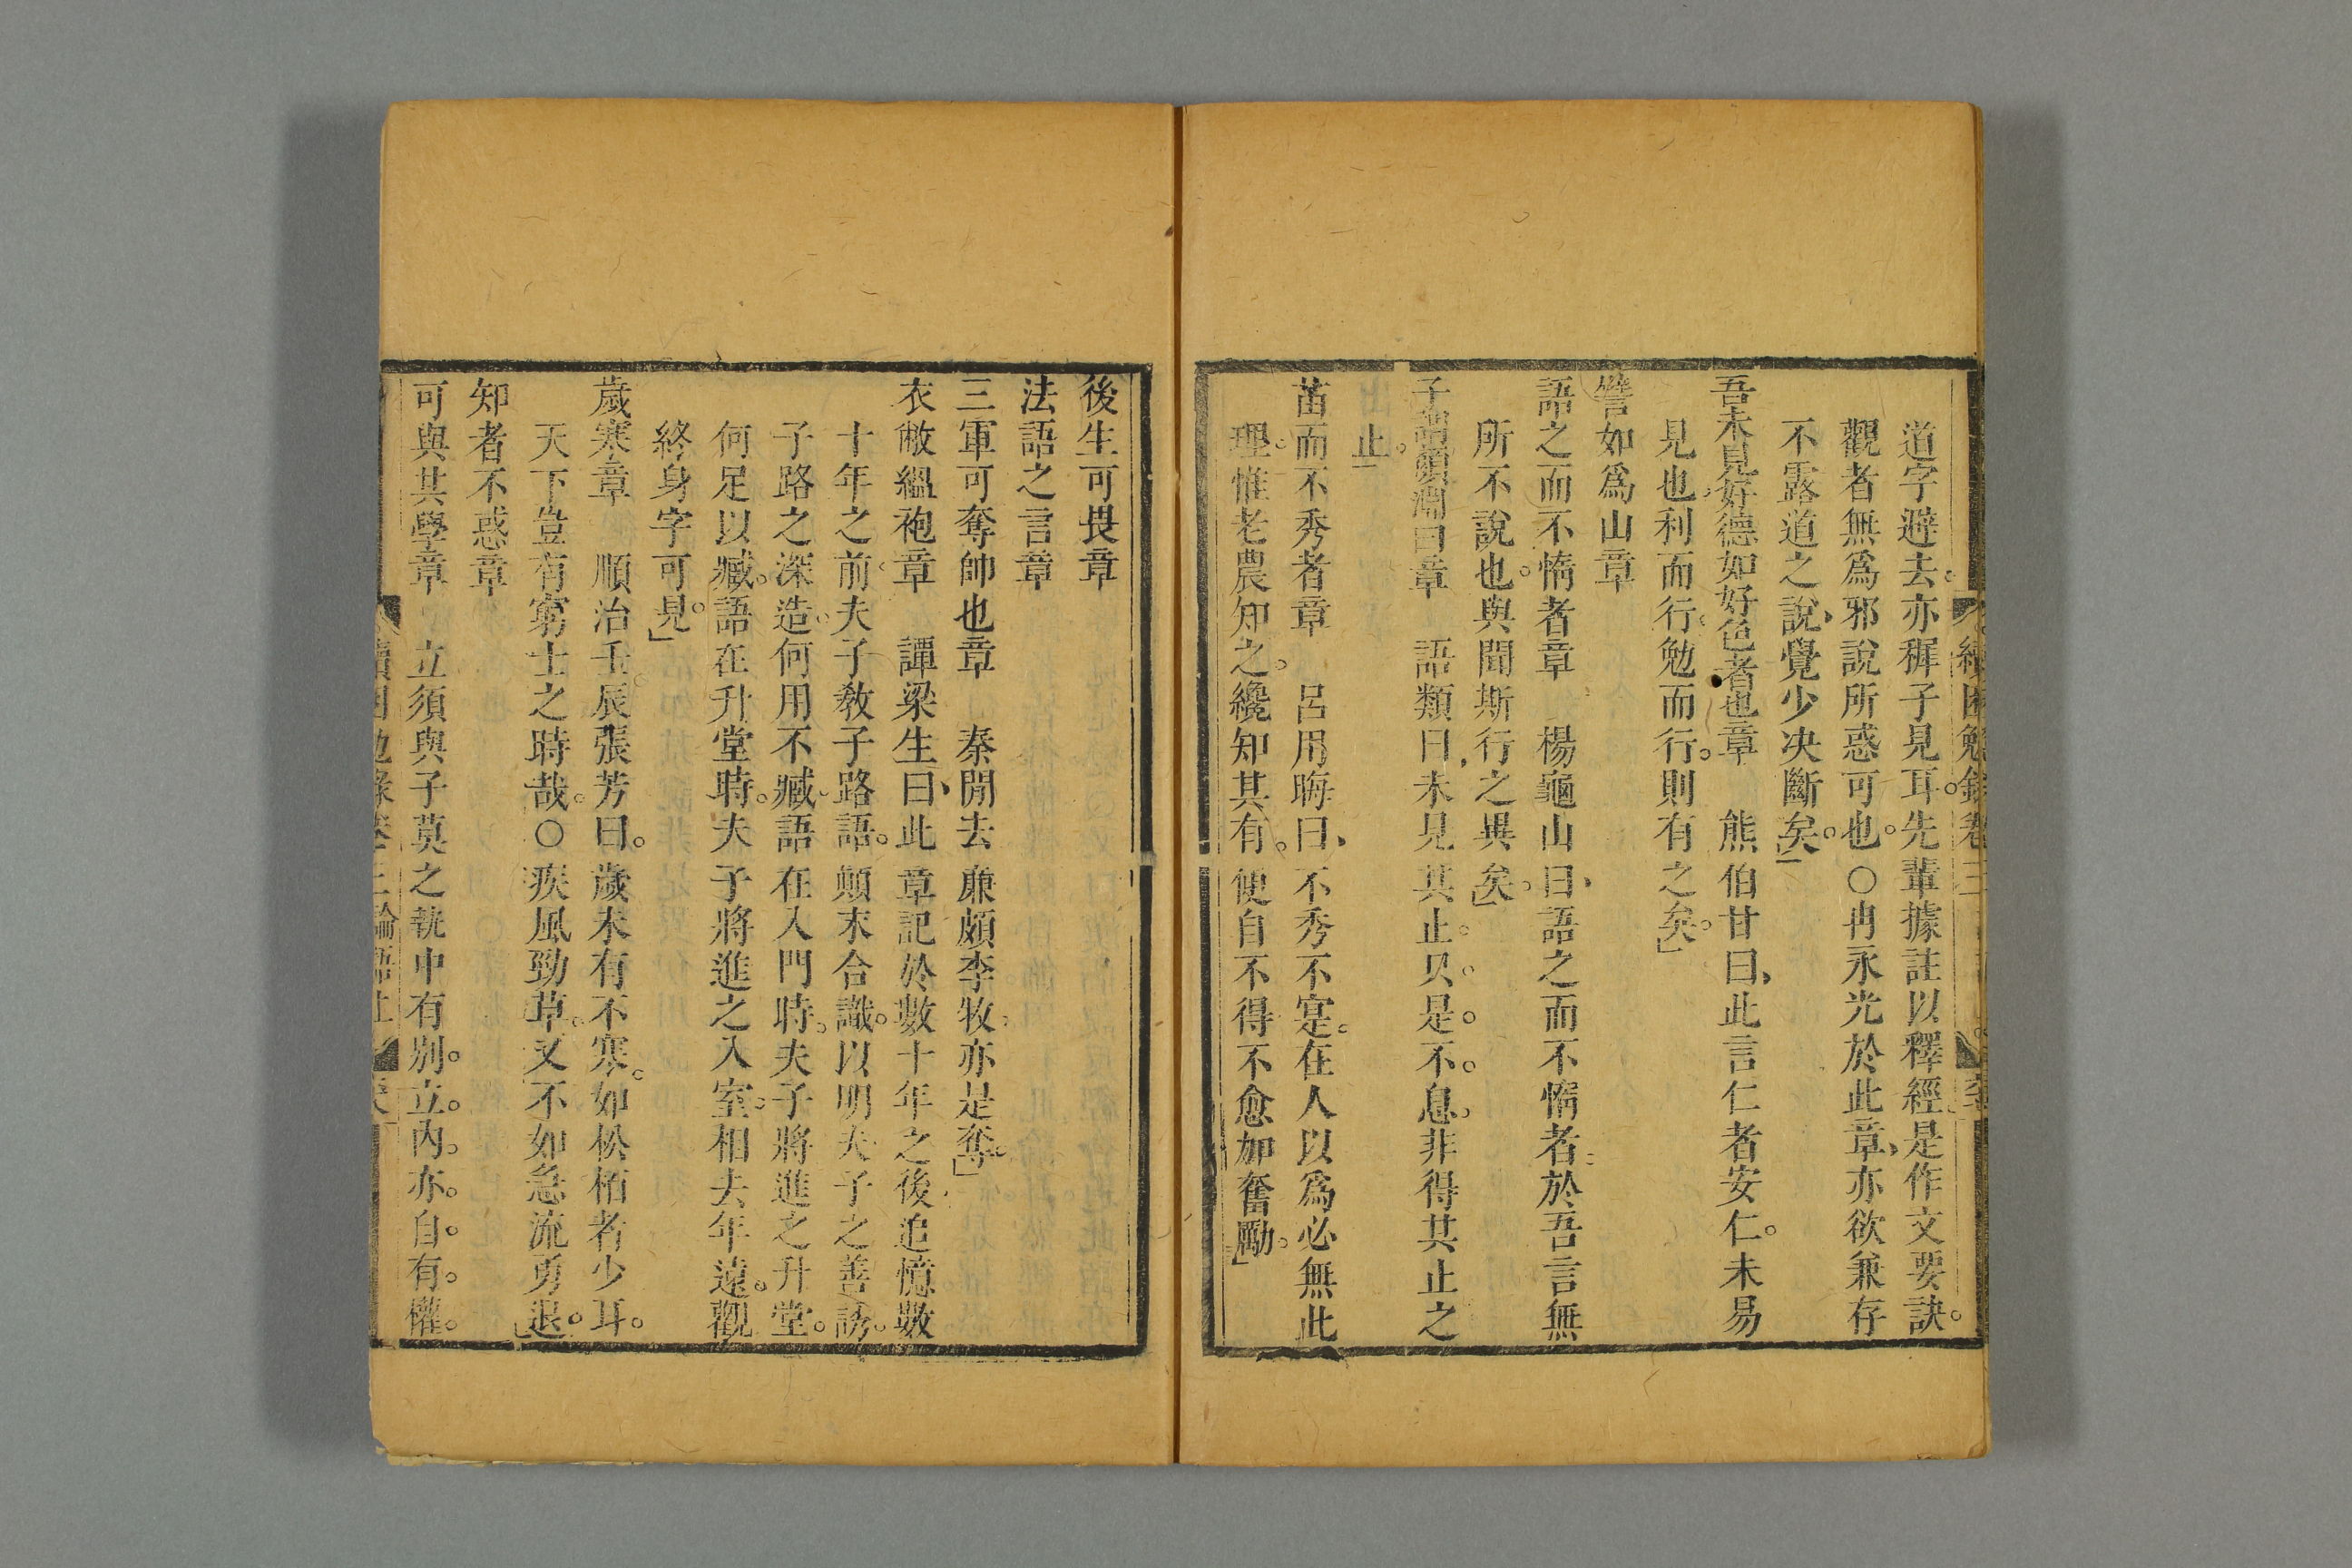 道字避去。亦穉子見耳。先輩據註以釋經。是作文要訣。
觀者無爲邪說所惑可也。○冉永光於此章、亦欲兼存
不露道之說、覺少决斷矣。」
吾未見好德如好色者也章　熊伯甘曰、此言仁者安仁。未易
見也。利而行。勉而行。則有之矣。」
譬如爲山章
語之而不惰者章　楊龜山曰、語之而不惰者。於吾言無
所不說也。與聞斯行之異矣。」
子謂顔淵曰章　語類曰、未見其止。只。是。不。息。非得其止之
止。」
苗而不秀者章　呂用晦曰、不秀不寔。在人以爲必無此
理。惟老農知之。纔知其有。便自不得不愈加奮勵。」
後生可畏章
法語之言章
三軍可奪帥也章　秦閒去廉頗李牧。亦是奪。」
衣敝縕袍章　譚梁生曰、此章記於數十年之後。追憶數
十年之前。夫子敎子路語。顛末合識。以明夫子之善誘。
子路之深造。何用不臧。語在入門時。夫子將進之升堂。
何足以臧。語在升堂時。夫子將進之入室。相去年遠。觀
終身字可見。」
歲寒章　順治壬辰張芳曰。歲未有不寒。如松栢者少耳。
天下豈有窮士之時哉。○疾風勁草。又不如急流勇退。」
知者不惑章
可與共學章　立須與子莫之執中有别。立。內。亦。自。有。權。